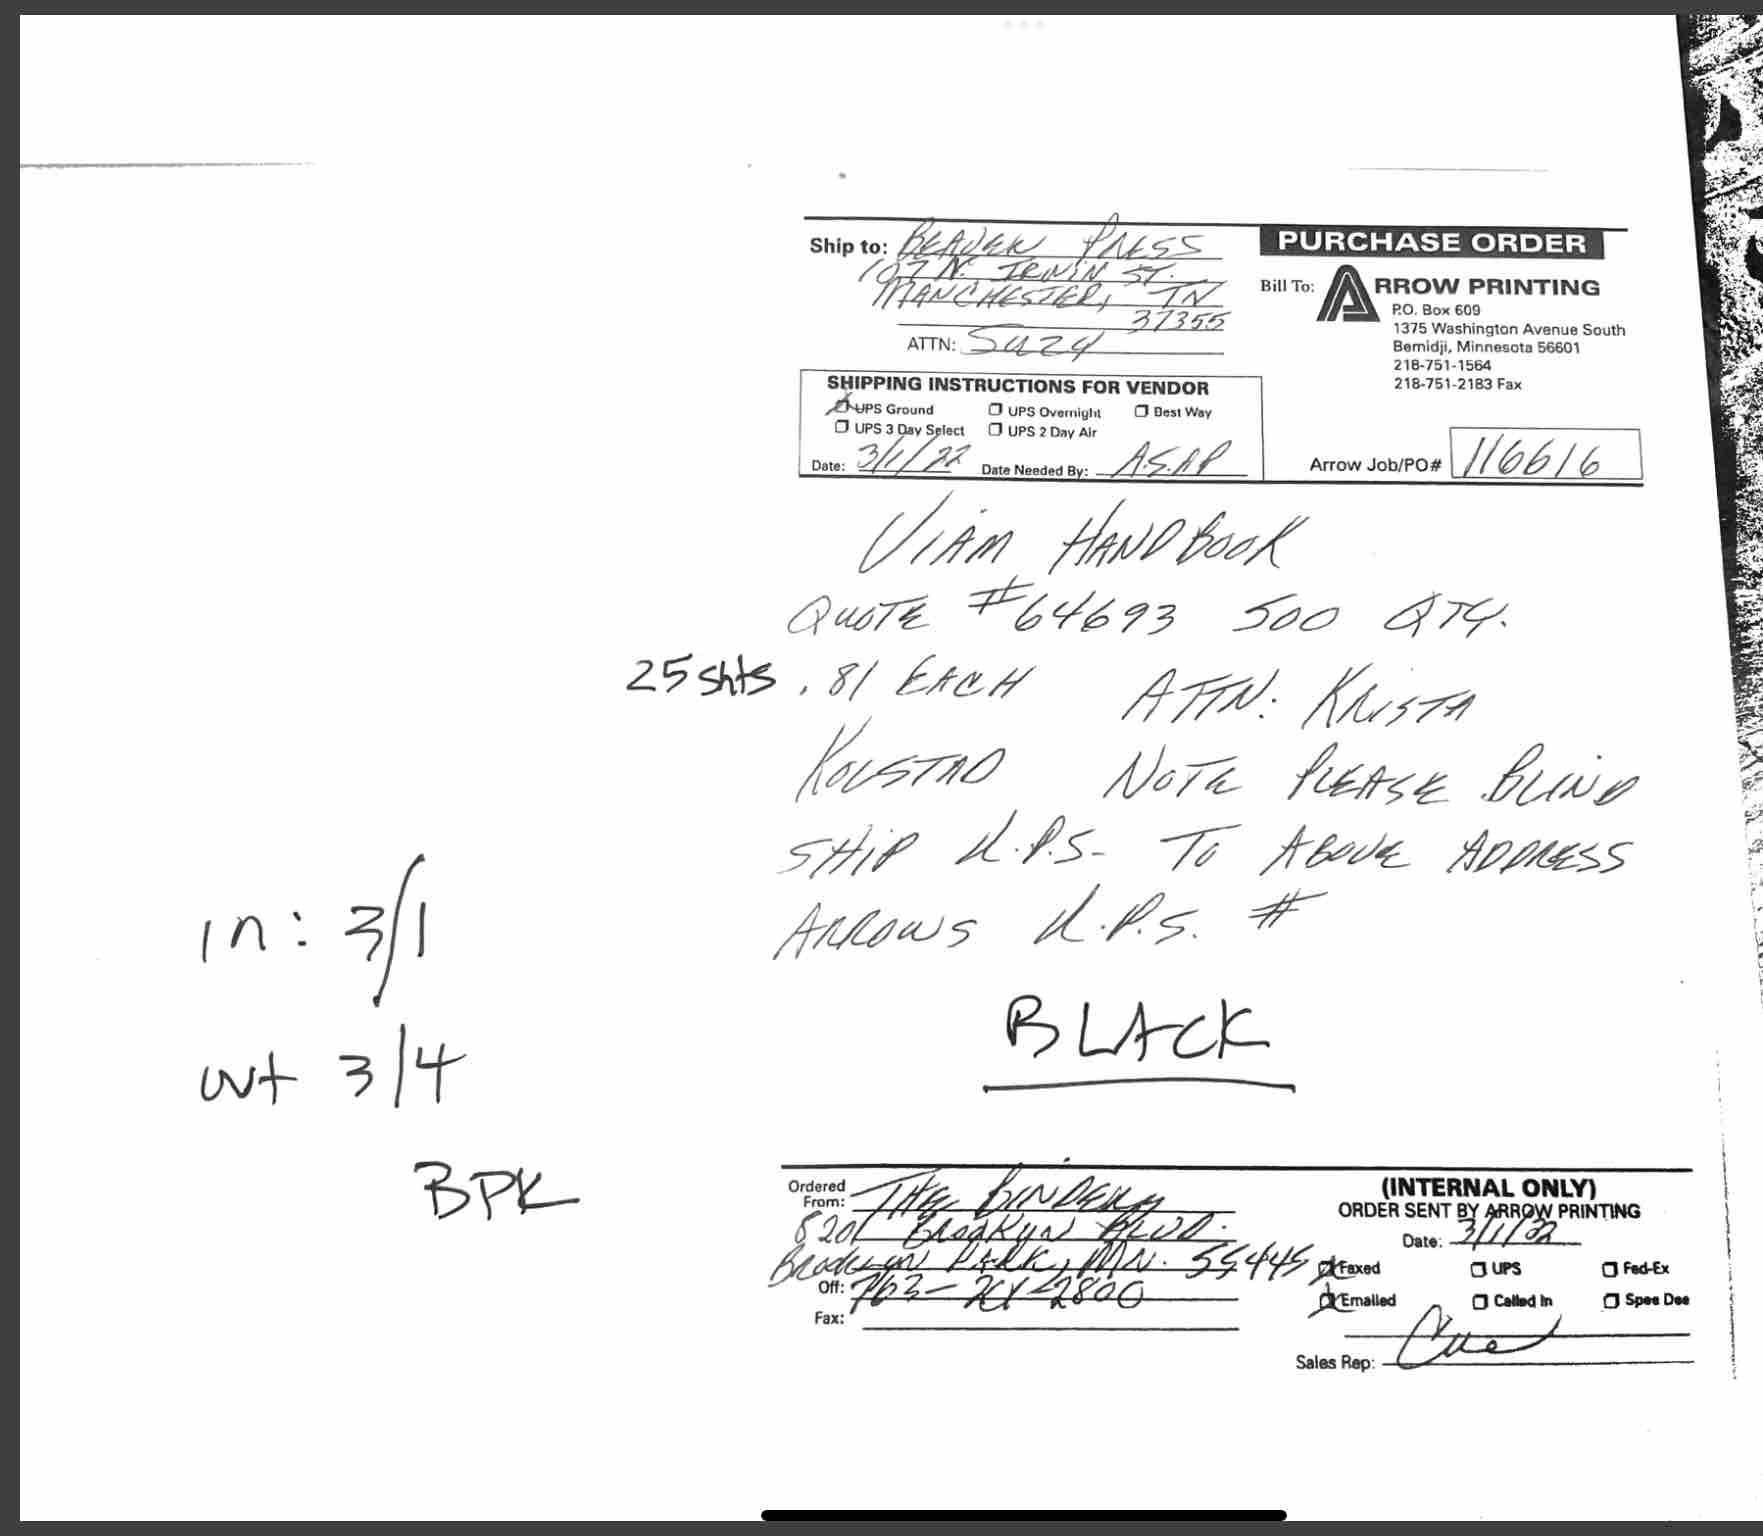 Ship to: BEAVER PRESS
107 N. IRWIN ST.
MANCHESTER, TN
37355
ATTN: SUZY
PURCHASE ORDER
Bill To: ARROW PRINTING
P.O. Box 609
1375 Washington Avenue South
Bemidji, Minnesota 56601
218-751-1564
218-751-2183 Fax
SHIPPING INSTRUCTIONS FOR VENDOR
UPS Ground UPS Overnight Best Way
UPS 3 Day Select UPS 2 Day Air
Date: 3/1/22 Date Needed By: A.S.A.P
Arrow Job/PO# 116616
VIAM HANDBOOK
QUOTE #64693 500 QTY.
25 shts .81 EACH ATTN: KRISTA
KOLSTAD NOTE PLEASE BLIND
SHIP U.P.S. TO ABOVE ADDRESS
ARROWS U.P.S. #
in: 3/1
BLACK
out 3/4
BPK
Ordered
From: THE BINDERY
8201 BROOKLYN BLVD.
BROOKLYN PARK, MN. 55445
Off: 763- -2800
Fax:
(INTERNAL ONLY)
ORDER SENT BY ARROW PRINTING
Date: 3/1/22
Faxed UPS Fed-Ex
Emailed Called In Spee Dee
Sales Rep: